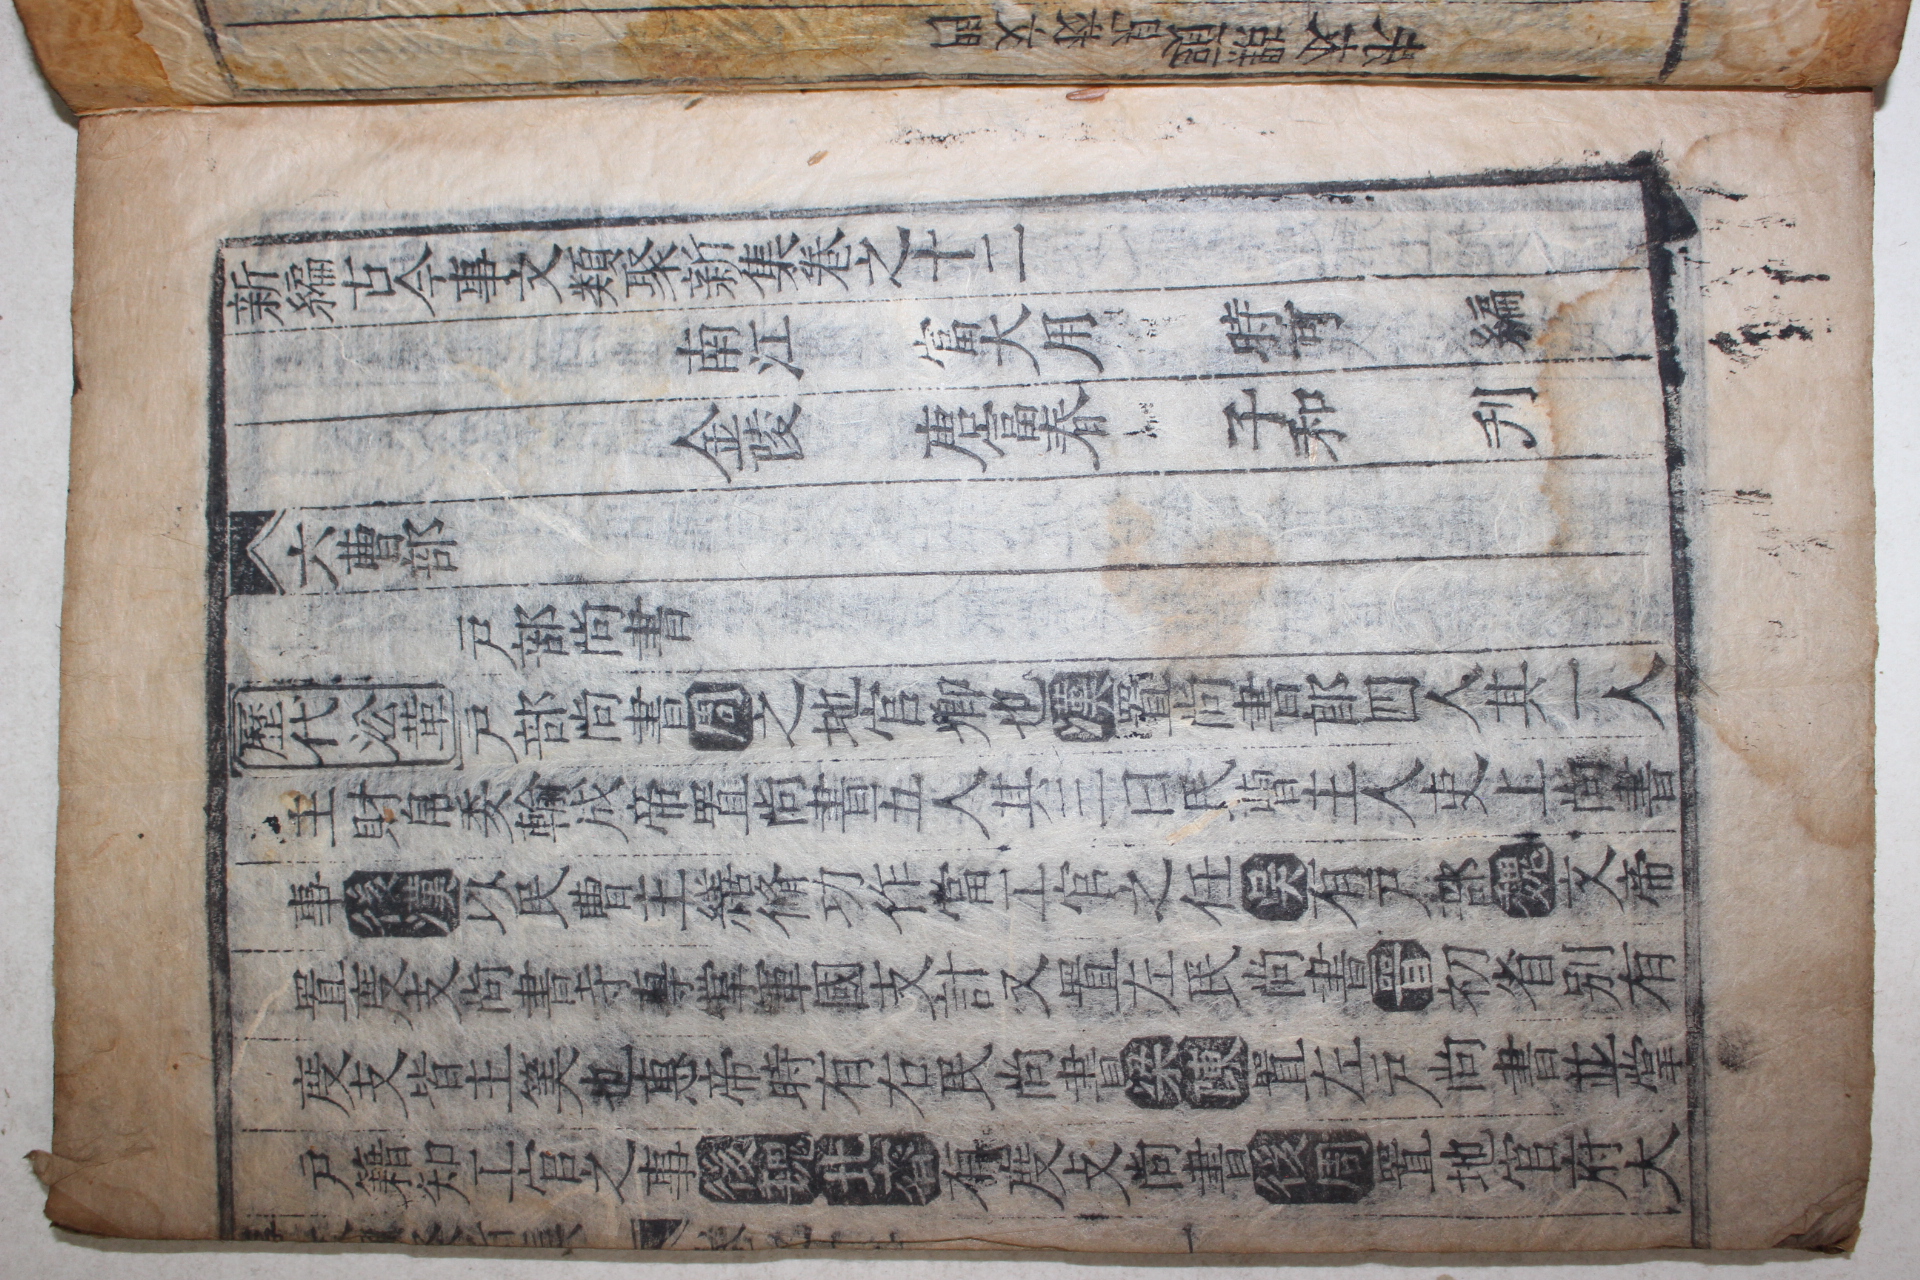 新編古今事文類聚新集卷之十二
南江 富大用 時可 編
金陵 唐富春 子和 刋
六曹部
戸部尚書
歷代㳂革戸部尚書周之地官卿也漢置尚書郎四人其一人
主財帛委輸成帝置尚書五人其三曰民曹主人吏上尚書
事後漢以民曹主繕脩功作當工官之任吳有戸部魏文帝
置度支尚書寺專掌軍國支計又置左民尚書晉初省別有
度支皆主筭也惠帝時有右民尚書梁陳置左戸尚書並掌
戸籍知工官之事後魏北齊有度支尚書後周置地官府大